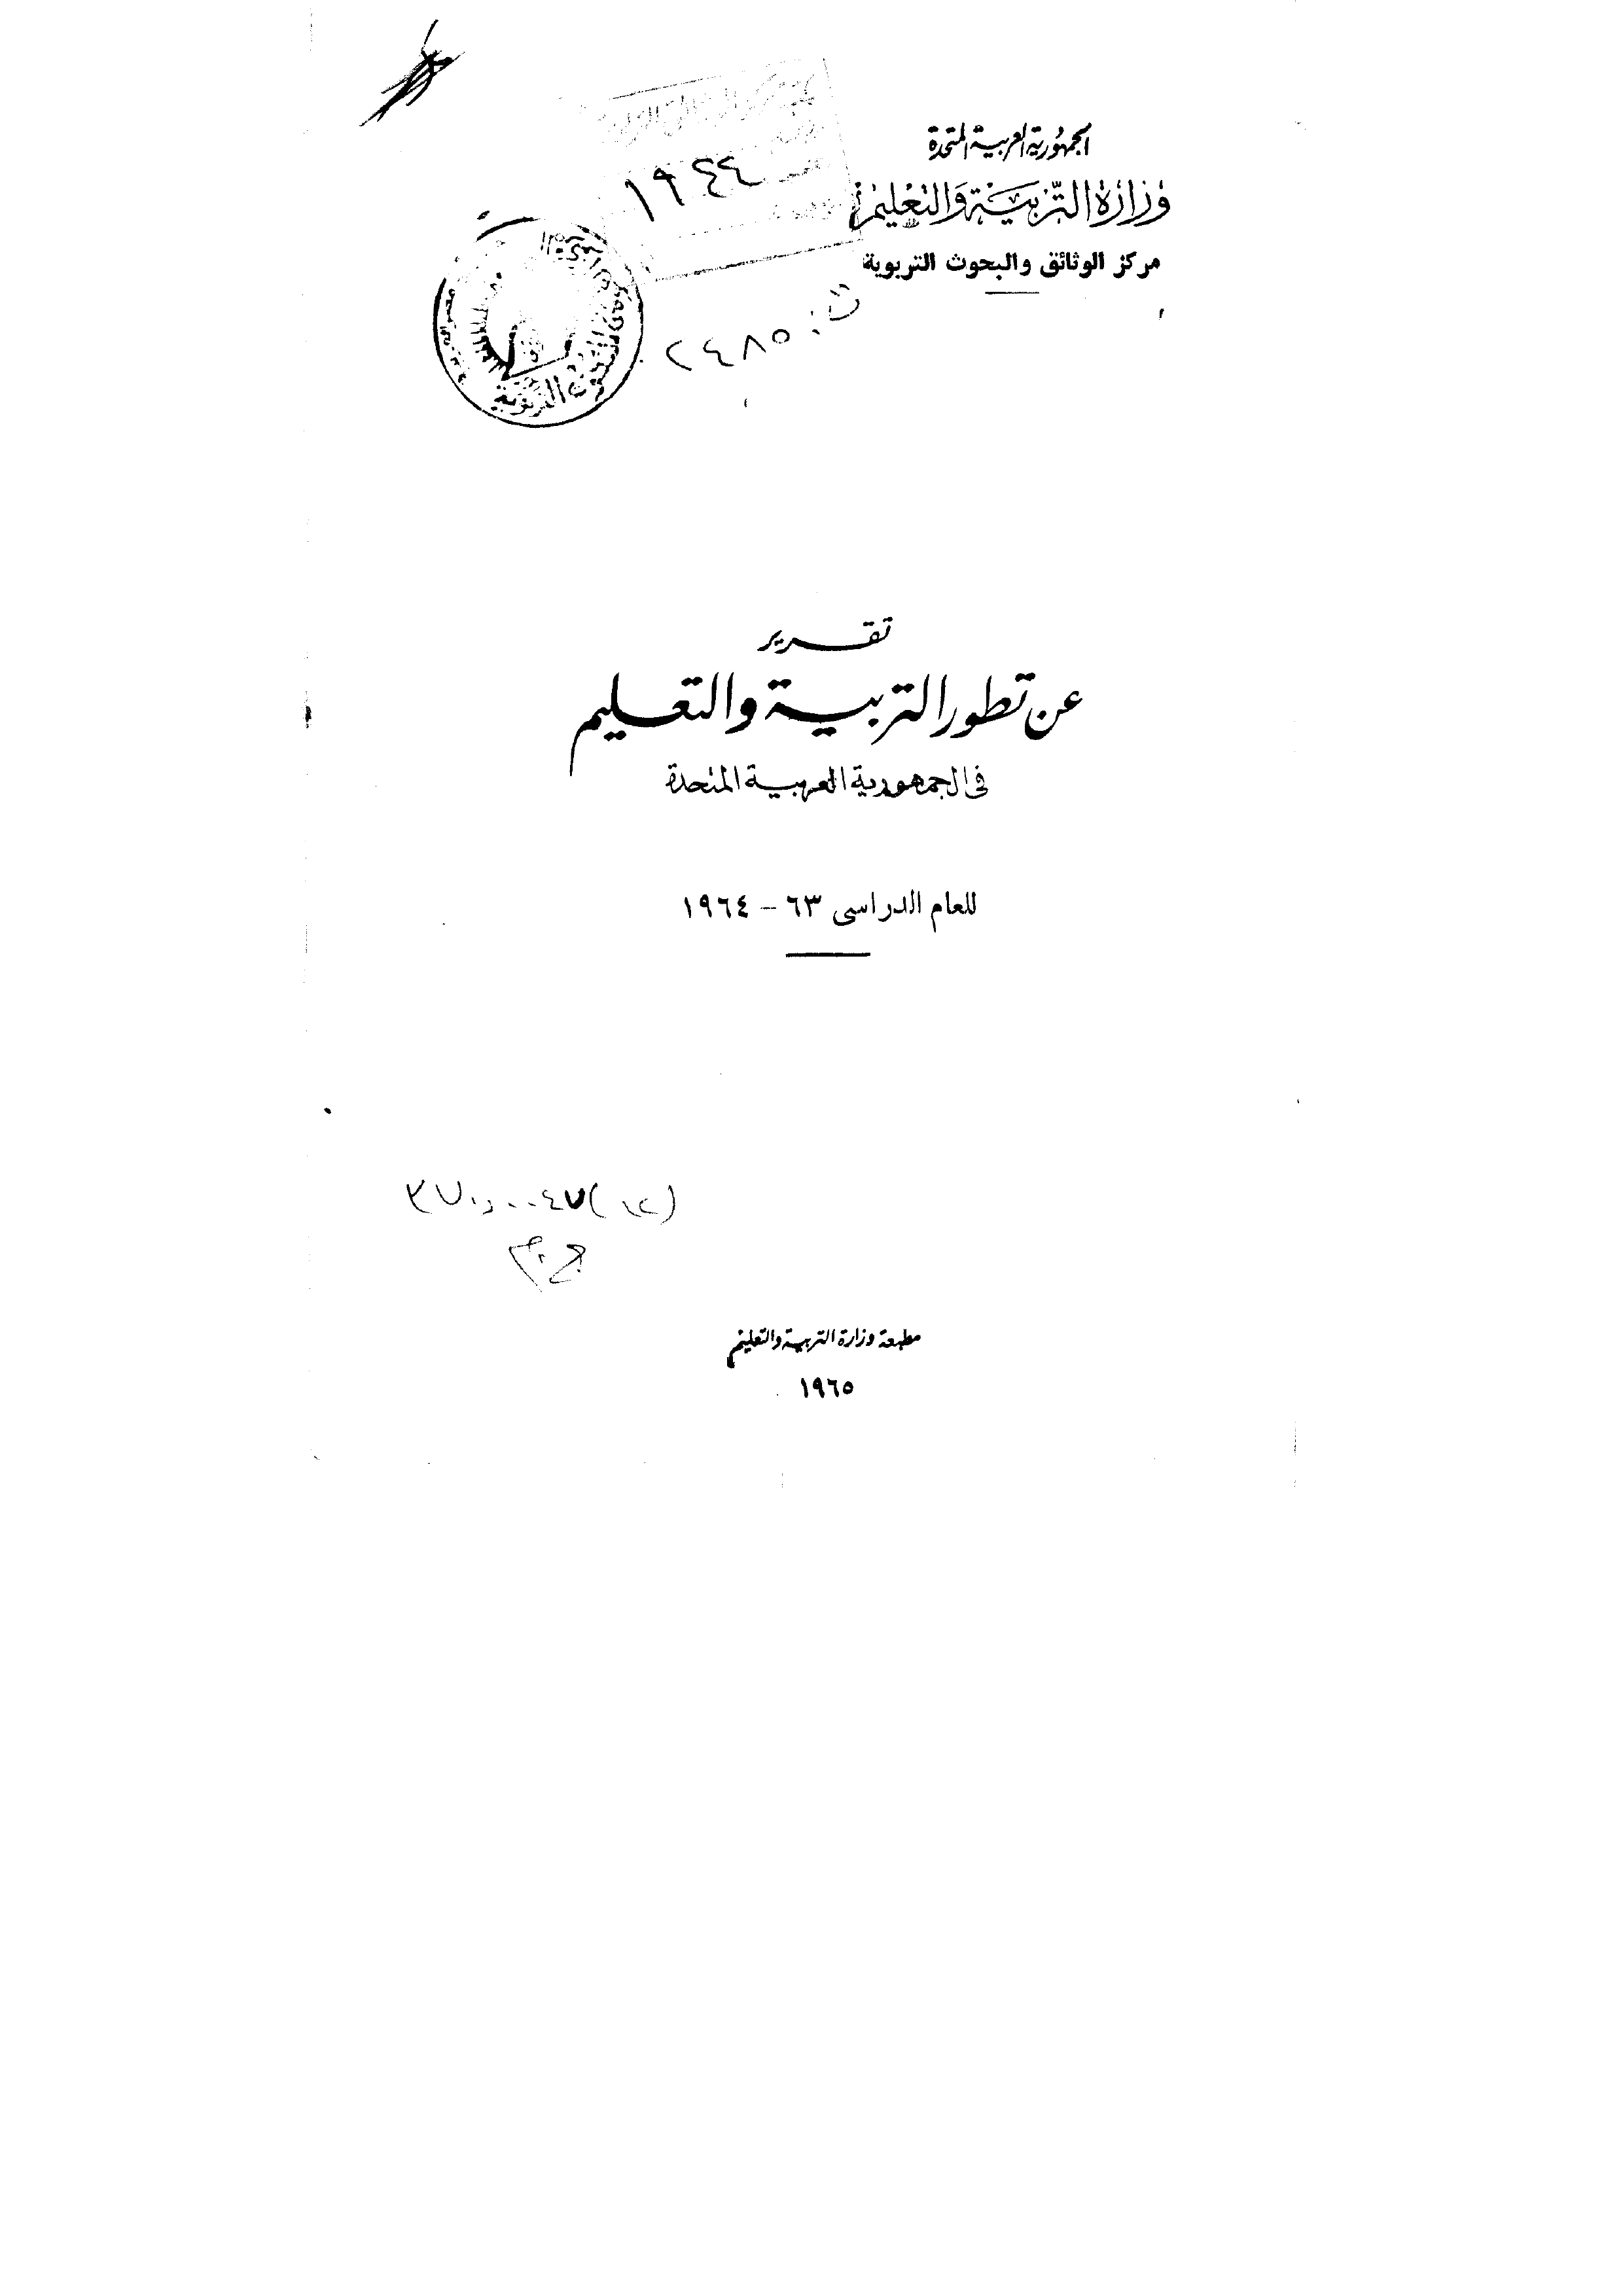 الجمهورية العربية المتحدة
وزارة التربية والتعليم
مركز الوثائق والبحوث التربوية
١٩٤٤
ت: ٢٤٨٥
تقرير
عن تطور التربية والتعليم
فى الجمهورية العربية المتحدة
للعام الدراسى ٦٣ – ١٩٦٤
مطبعة وزارة التربية والتعليم
١٩٦٥